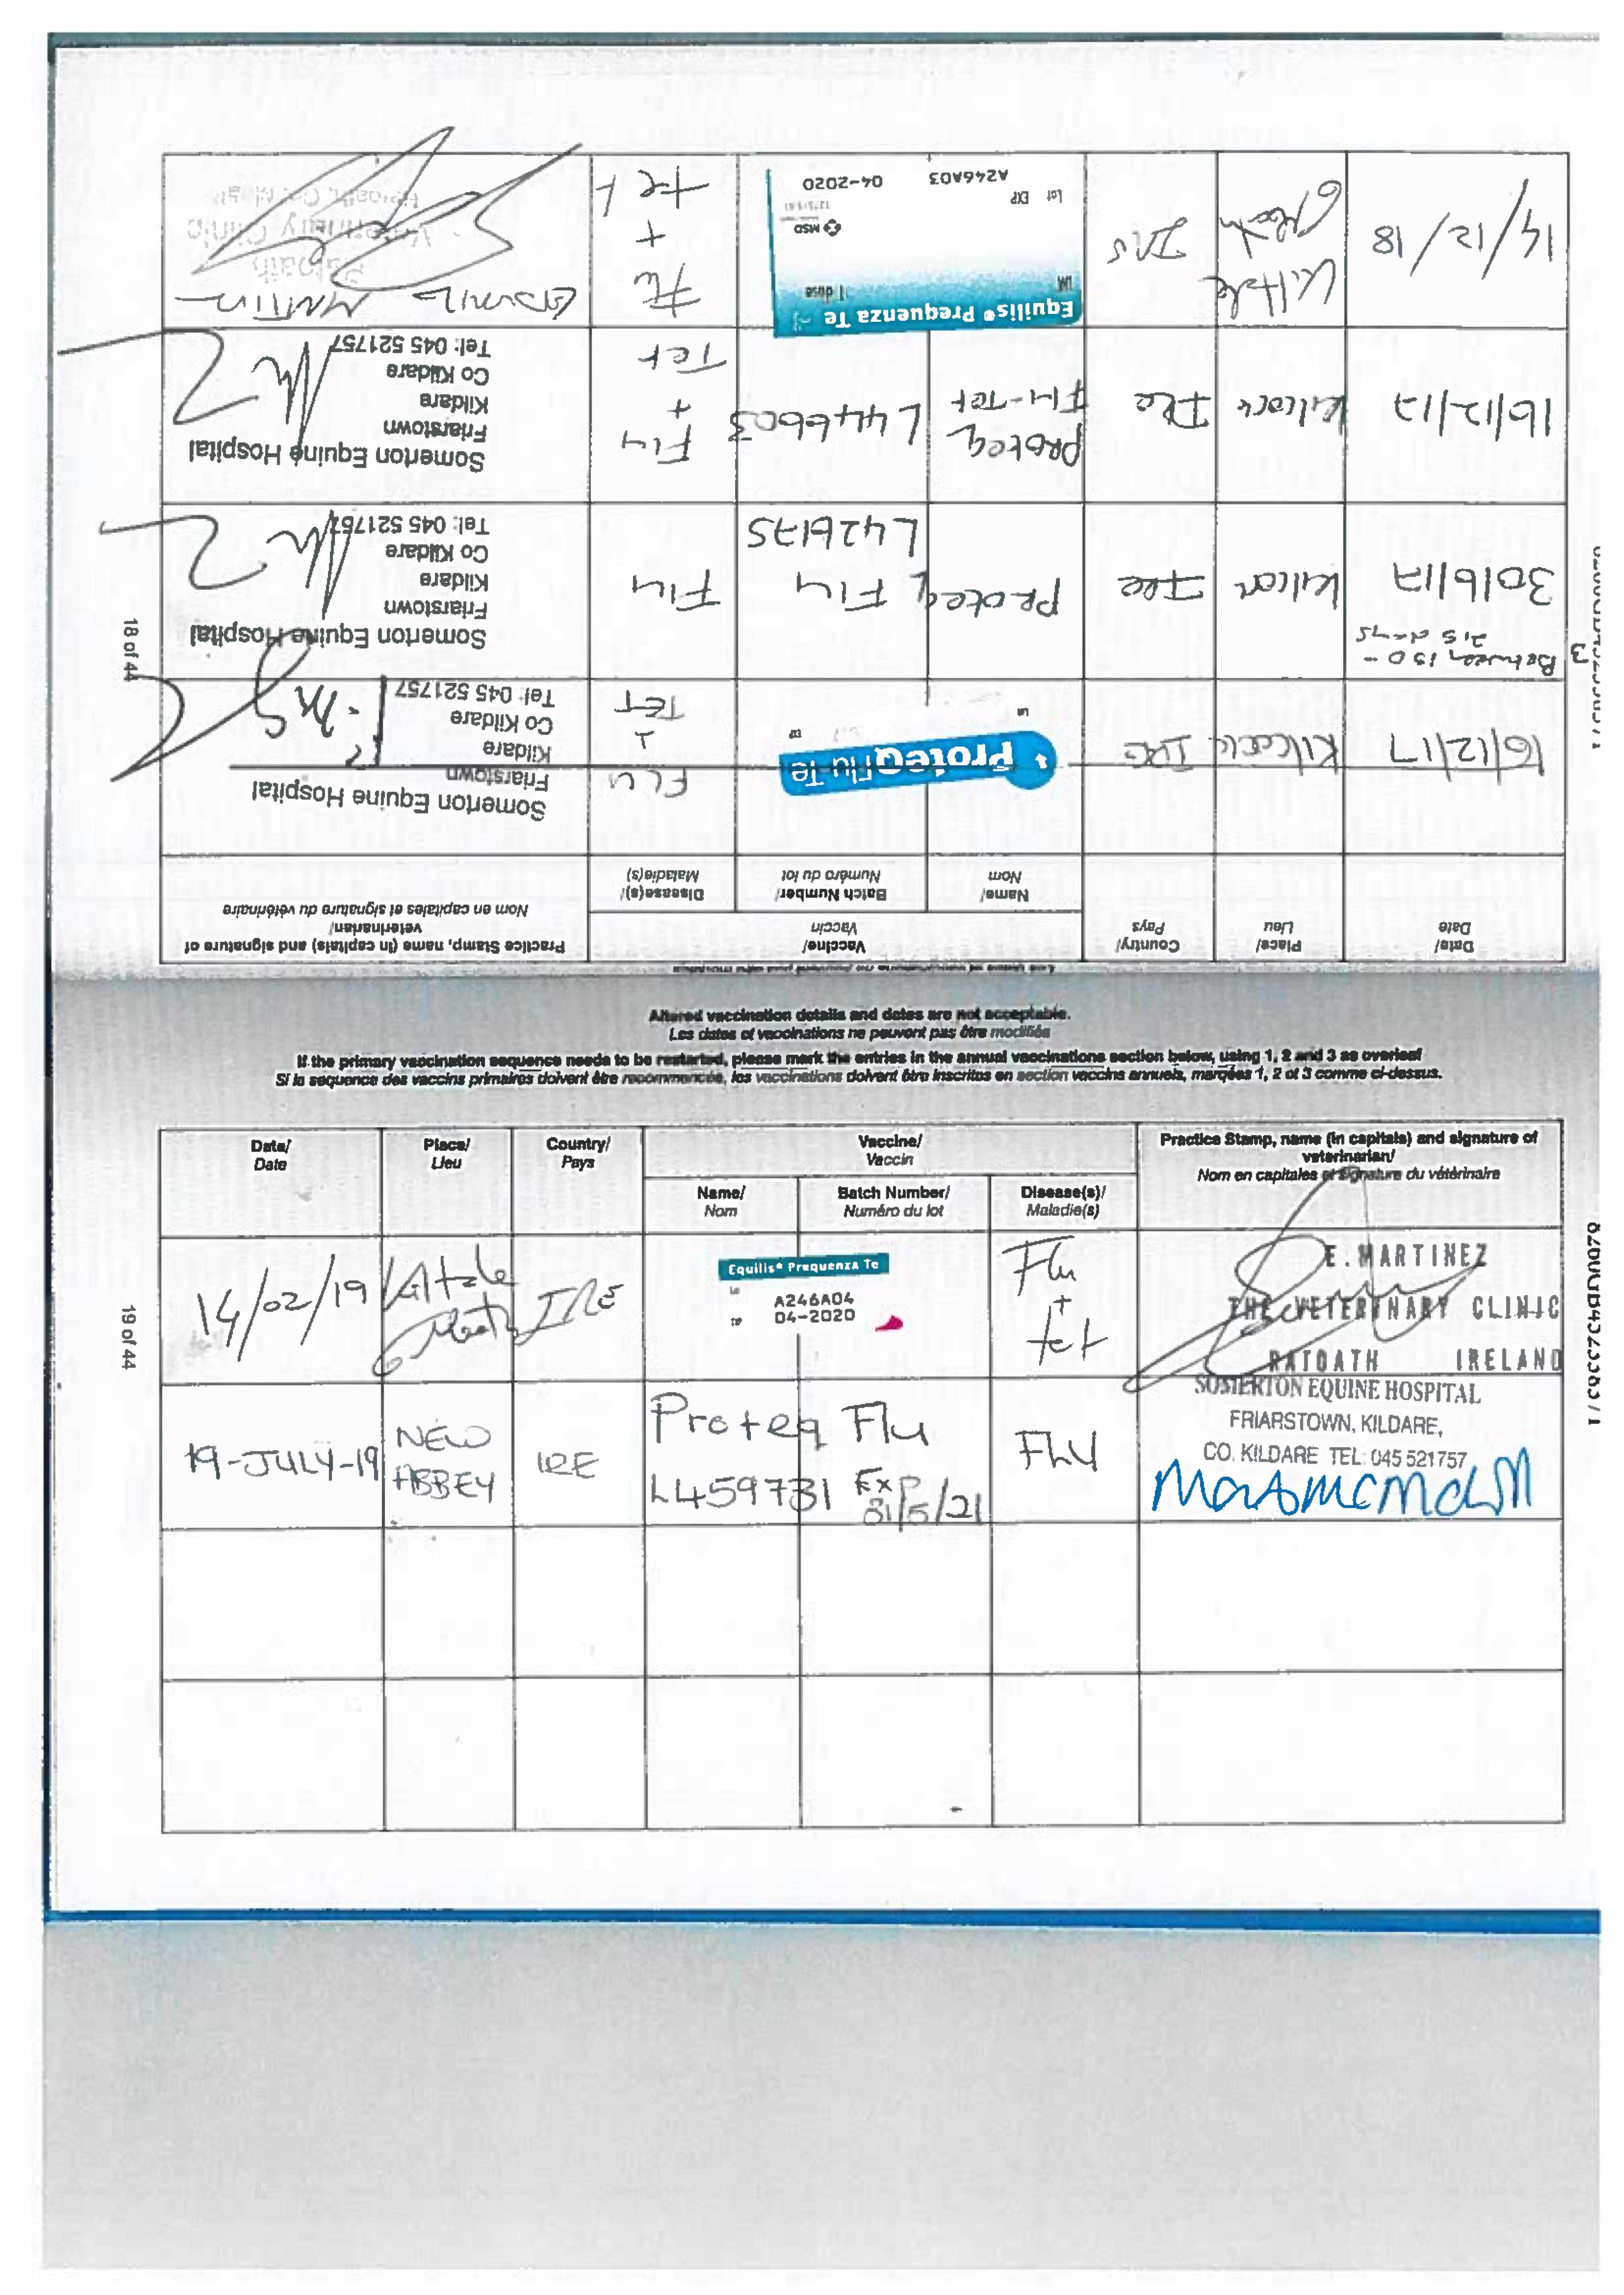 Date/
Date
Place/
Lieu
Country/
Pays
Vaccine/
Vaccin
Practice Stamp, name (in capitals) and signature of
veterinarian/
Nom en capitales et signature du vétérinaire
Name/
Nom
Batch Number/
Numéro du lot
Disease(s)/
Maladie(s)
16/12/17
IRE
ProteqFlu Te
FLU
TET
Somerton Equine Hospital
Friarstown
Kildare
Co Kildare
Tel: 045 521757
3
Between 150 -
215 days
30/6/17
IRE
Proteq Flu
Flu
Somerton Equine Hospital
Friarstown
Kildare
Co Kildare
Tel: 045 521757
18 of 44
16/12/17
Kilcock
IRE
Proteq
Flu-Tet
L446603
Flu
+
Tet
Somerton Equine Hospital
Friarstown
Kildare
Co Kildare
Tel: 045 521757
14/12/18
Kiltale
Meath
IRE
Equilis® Prequenza Te
1 dose
IM
MSD
Lot EXP
A246A03 04-2020
Flu
+
tet
Ratoath
Veterinary Clinic
Altered vaccination details and dates are not acceptable.
Les dates et vaccinations ne peuvent pas être modifiés
If the primary vaccination sequence needs to be restarted, please mark the entries in the annual vaccinations section below, using 1, 2 and 3 as overleaf
Si la sequence des vaccins primaires doivent être recommencée, les vaccinations doivent être inscrites en section vaccins annuels, marqées 1, 2 et 3 comme ci-dessus.
Date/
Date
Place/
Lieu
Country/
Pays
Vaccine/
Vaccin
Practice Stamp, name (in capitals) and signature of
veterinarian/
Nom en capitales et signature du vétérinaire
Name/
Nom
Batch Number/
Numéro du lot
Disease(s)/
Maladie(s)
14/02/19
Kiltale
Meath
IRE
Equilis® Prequenza Te
A246A04
04-2020
Flu
+
tet
E. MARTINEZ
THE VETERINARY CLINIC
RATOATH IRELAND
19 of 44
19-JULY-19
NEW
ABBEY
IRE
Proteq Flu
L459731 Exp
31/5/21
FLU
SOMERTON EQUINE HOSPITAL
FRIARSTOWN, KILDARE,
CO. KILDARE TEL: 045 521757